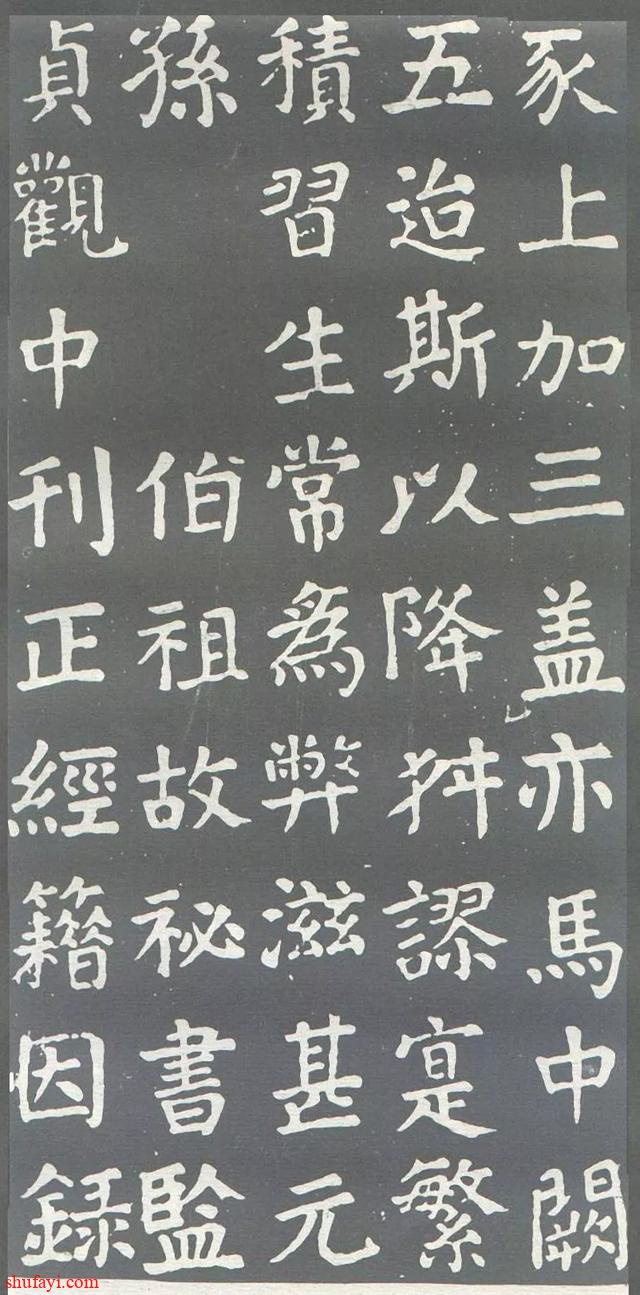 豕上加三盖亦馬中闕
五迨斯以降舛謬寔繁
積習生常爲弊滋甚元
孫 伯祖故祕書監
貞觀中刊正經籍因録
shufayi.com